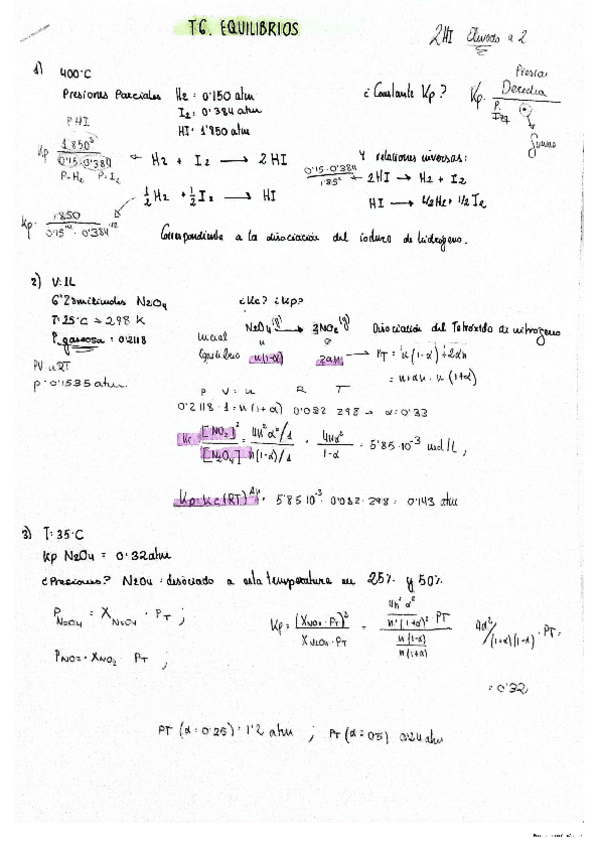 T6. EQUILIBRIOS
2HI Elevado a 2
1) 400°C
Presiones Parciales H2 = 0'150 atm
I2 = 0'384 atm
HI = 1'850 atm
¿Constante Kp?
Kp = Presión Derecha / P. Izq
P HI
Kp = 1'850² / 0'15 · 0'384 ← H2 + I2 → 2HI
P-H2 P-I2
Y relaciones inversas:
0'15 · 0'384 / 1'85² ← 2HI → H2 + I2
1/2 H2 + 1/2 I2 → HI
HI → 1/2 H2 + 1/2 I2
Kp = 1'850 / 0'15^1/2 · 0'384^1/2
Correspondiente a la disociación del ioduro de hidrógeno.
2) V = 1L
N2O4 ¿Kc? ¿Kp?
T = 25°C → 298 K
P gaseosa = 0'2118
PV = nRT
p = 0'1535 atm.
N2O4 (g) → 2NO2 (g) Disociación del Tetróxido de nitrógeno
Inicial n 0
Equilibrio n(1-α) 2αn → PT = n(1-α) + 2αn
= n + αn = n(1+α)
P V = n R T
0'2118 · 1 = n(1+α) 0'082 298 → α = 0'33
Kc = [NO2]² / [N2O4] = 4n²α²/1 / n(1-α)/1 = 4nα² / 1-α = 5'85·10⁻³ mol/L;
Kp = Kc (RT)^Δn = 5'85·10⁻³ · 0'082 · 298 = 0'143 atm
3) T = 35°C
Kp N2O4 = 0'32 atm
¿Presiones? N2O4 = disociado a esta temperatura en 25% y 50%
P N2O4 = X N2O4 · PT ;
P NO2 = X NO2 · PT ;
Kp = (X NO2 · PT)² / X N2O4 · PT = 4n²α² / n²(1+α)² · PT / n(1-α) / n(1+α)
4α² / (1+α)(1-α) · PT =
= 0'32
PT (α = 0'25) = 1'2 atm ; PT (α = 0'5) 0'24 atm